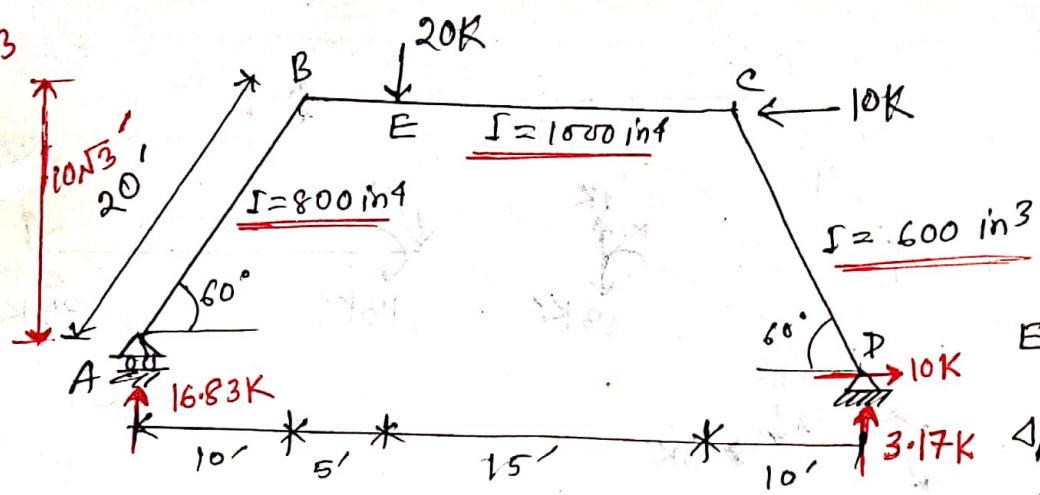 3
20K
B
C
10K
E
I = 1000 in4
10√3'
20'
I = 800 in4
I = 600 in3
60°
60°
D
E
A
10K
16.83K
3.17K
10'
5'
15'
10'